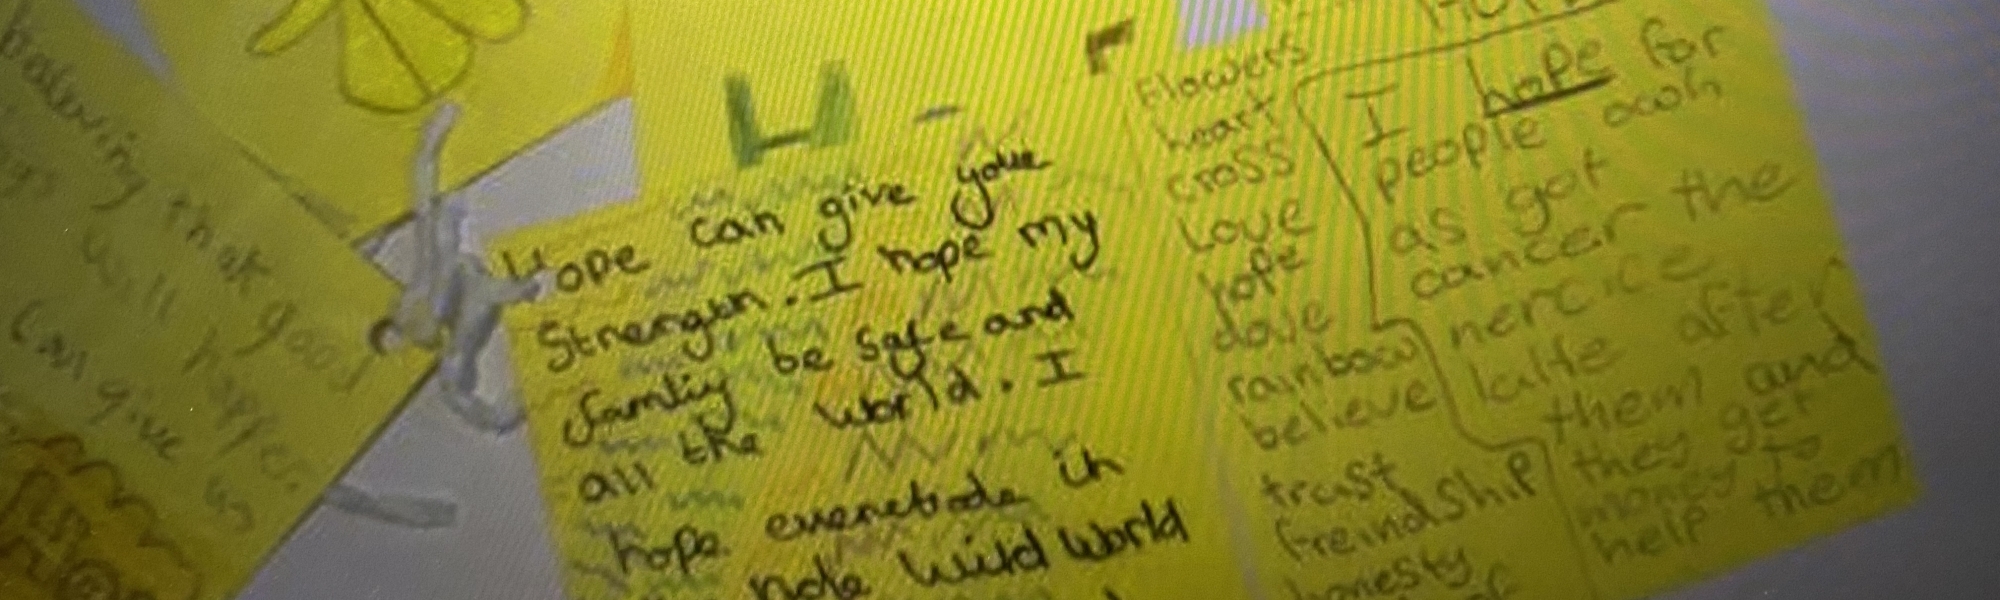 believing that good
will happen.
can give us
Hope can give you
Strength. I hope my
famliy be safe and
all the world. I
hope in
wild world
Flowers
heart
cross
Love
hope
dove
rainbow
believe
trust
freindship
honesty
I hope for
people
as got
cancer the
after
them and
they get
money to
help them